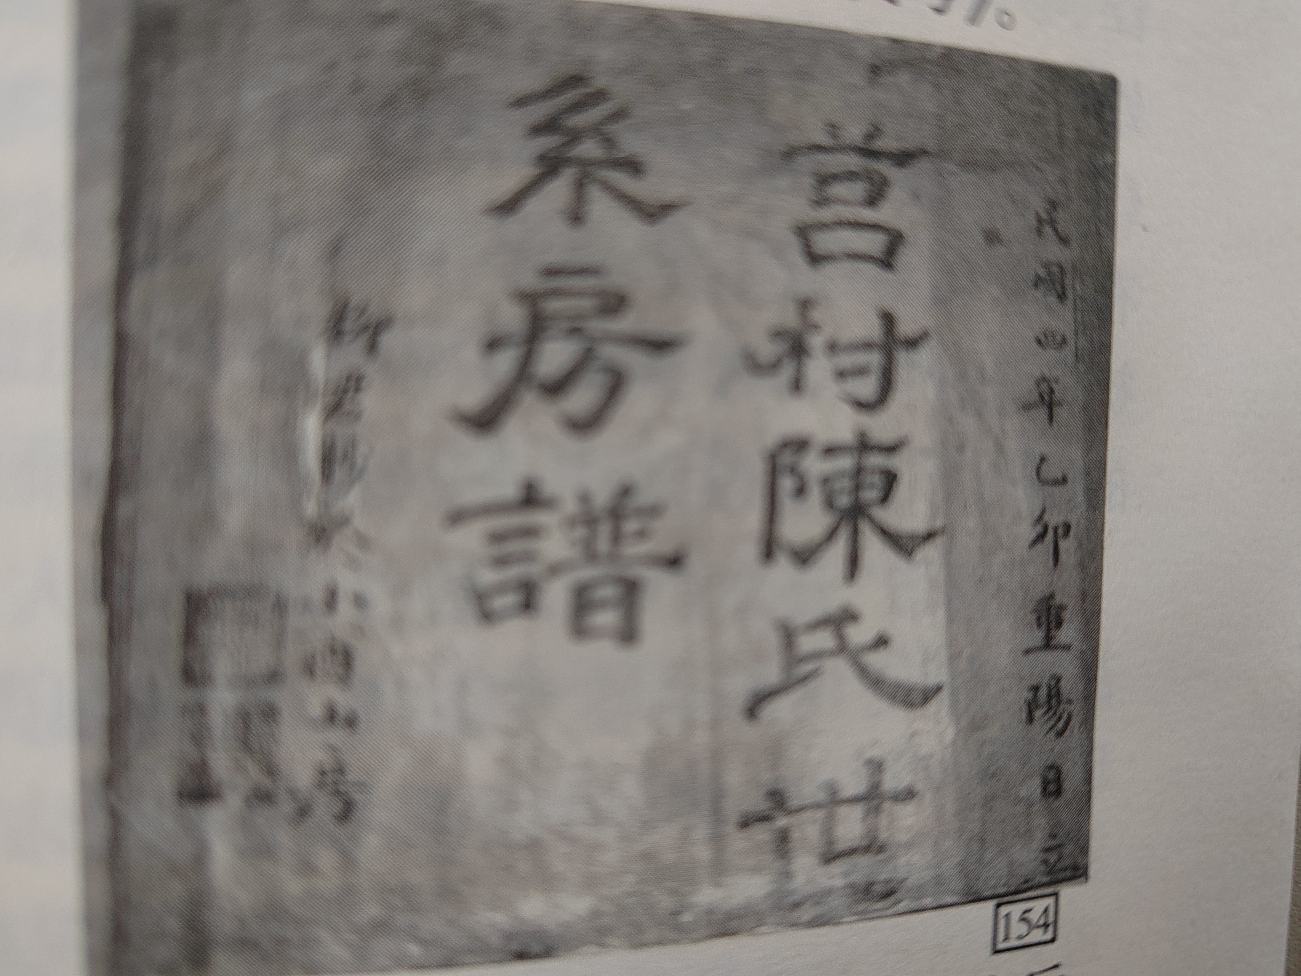 民國四年乙卯重陽日立
莒村陳氏世
系房譜
小酉山房
154